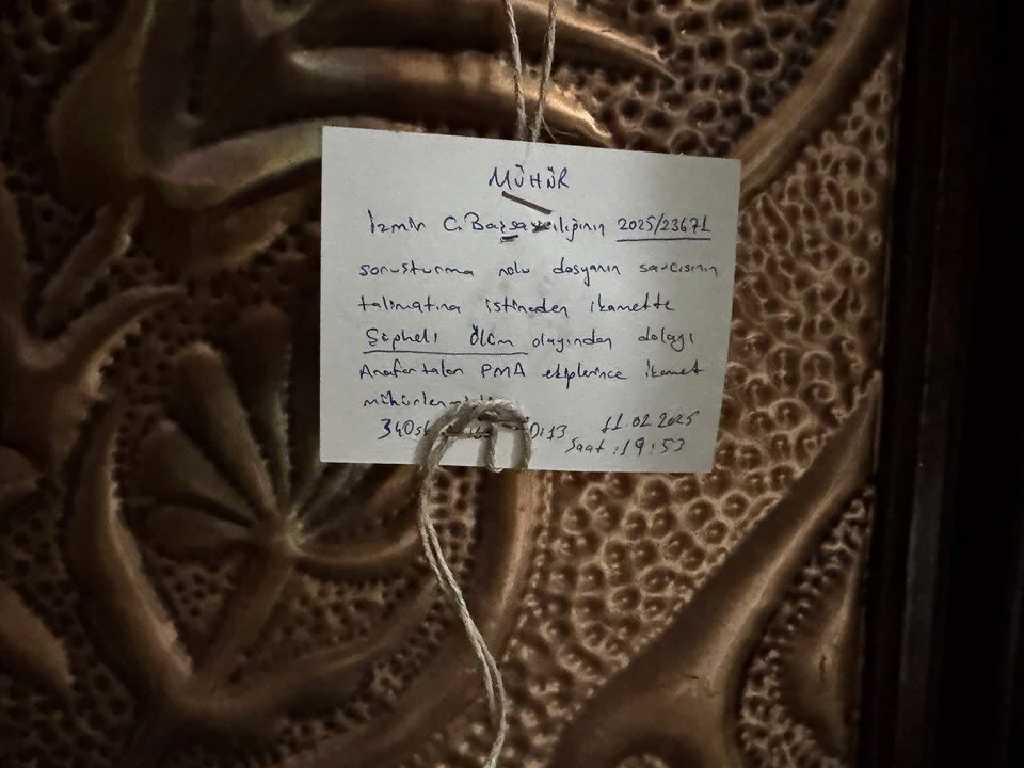 MÜHÜR
İzmir C. Başsavcılığının 2025/23671
soruşturma nolu dosyanın savcısının
talimatına istinaden ikamette
Şüpheli Ölüm olayından dolayı
Anafartalar PMA ekiplerince ikamet
D:13 11.02.2025
Saat: 19:53